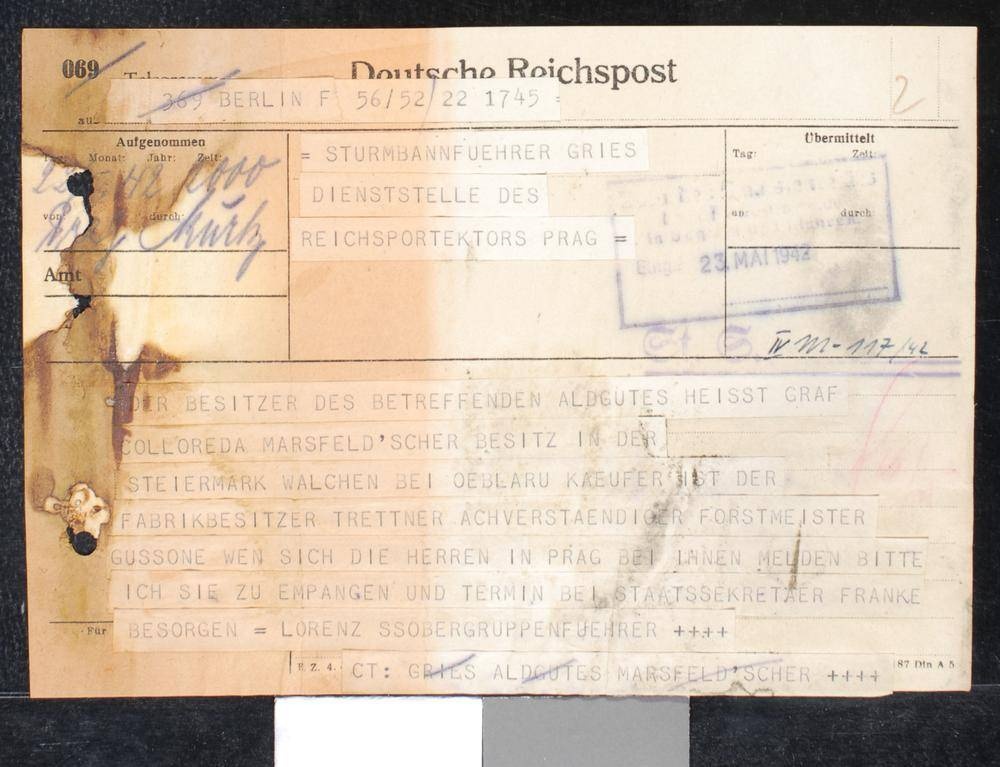 069
Deutsche Reichspost
2
369 BERLIN F 56/52 22 1745 =
Aufgenommen
Übermittelt
Monat: Jahr: Zeit:
Tag: Zeit:
42 2000
von: durch:
an: durch:
Amt
= STURMBANNFUEHRER GRIES
DIENSTSTELLE DES
REICHSPORTEKTORS PRAG =
Eing. 23. MAI 1942
St S
IV M - 117/42
DER BESITZER DES BETREFFENDEN ALDGUTES HEISST GRAF
COLLOREDA MARSFELD'SCHER BESITZ IN DER
STEIERMARK WALCHEN BEI OEBLARU KAEUFER IST DER
FABRIKBESITZER TRETTNER ACHVERSTAENDIGER FORSTMEISTER
GUSSONE WEN SICH DIE HERREN IN PRAG BEI IHNEN MELDEN BITTE
ICH SIE ZU EMPANGEN UND TERMIN BEI STAATSSEKRETAER FRANKE
BESORGEN = LORENZ SSOBERGRUPPENFUEHRER ++++
Für
CT: GRIES ALDGUTES MARSFELD'SCHER ++++
87 Din A 5